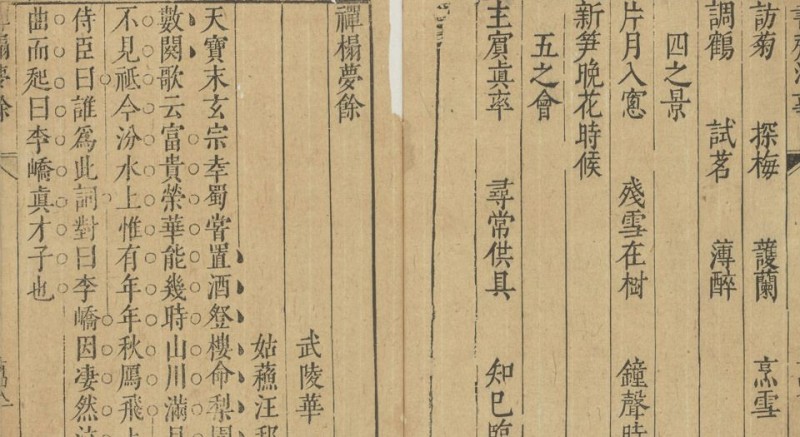 訪菊　探梅　護蘭　烹雪
調鶴　試茗　薄醉
四之景
片月入窓　殘雪在樹　鐘聲時
新笋晚花時候
五之會
主賓眞率　尋常供具　知已臨
禪榻夢餘
武陵華
姑蘓汪
天寶末玄宗幸蜀甞置酒登樓命梨園
數闋歌云富貴榮華能幾時山川滿
不見祗今汾水上惟有年年秋鴈飛
侍臣曰誰爲此詞對曰李嶠因凄然
曲而起曰李嶠眞才子也